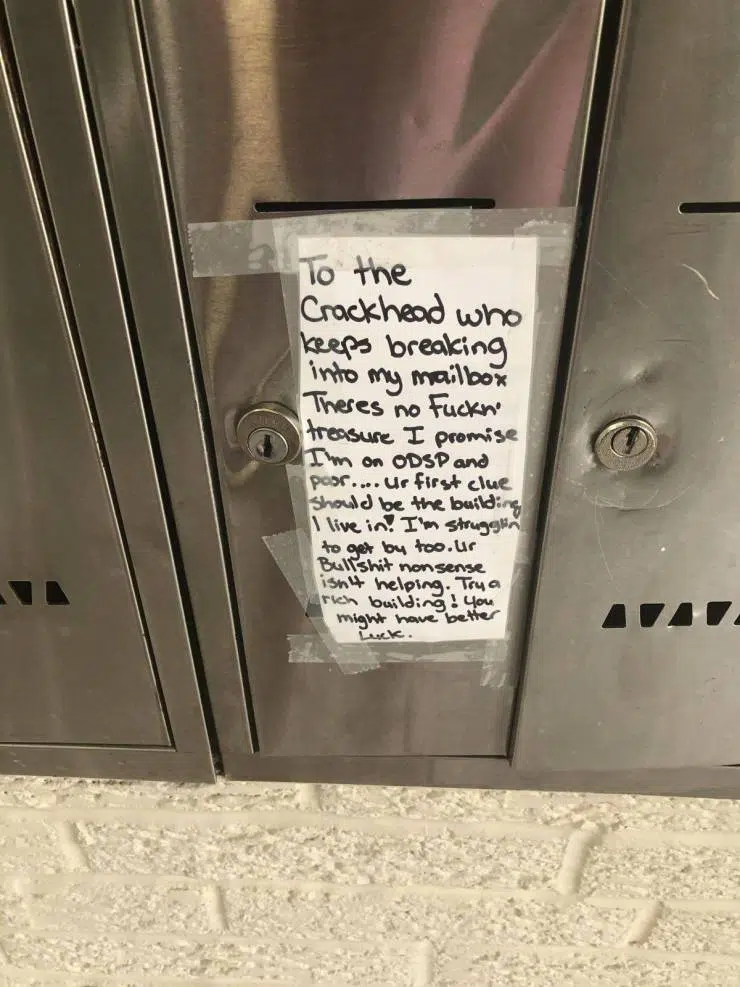 To the
Crackhead who
keeps breaking
into my mailbox
Theres no Fuckn'
treasure I promise
I'm on ODSP and
poor.... ur first clue
should be the building
I live in! I'm strugglin
to get by too. Ur
Bullshit nonsense
isn't helping. Try a
rich building! You
might have better
Luck.